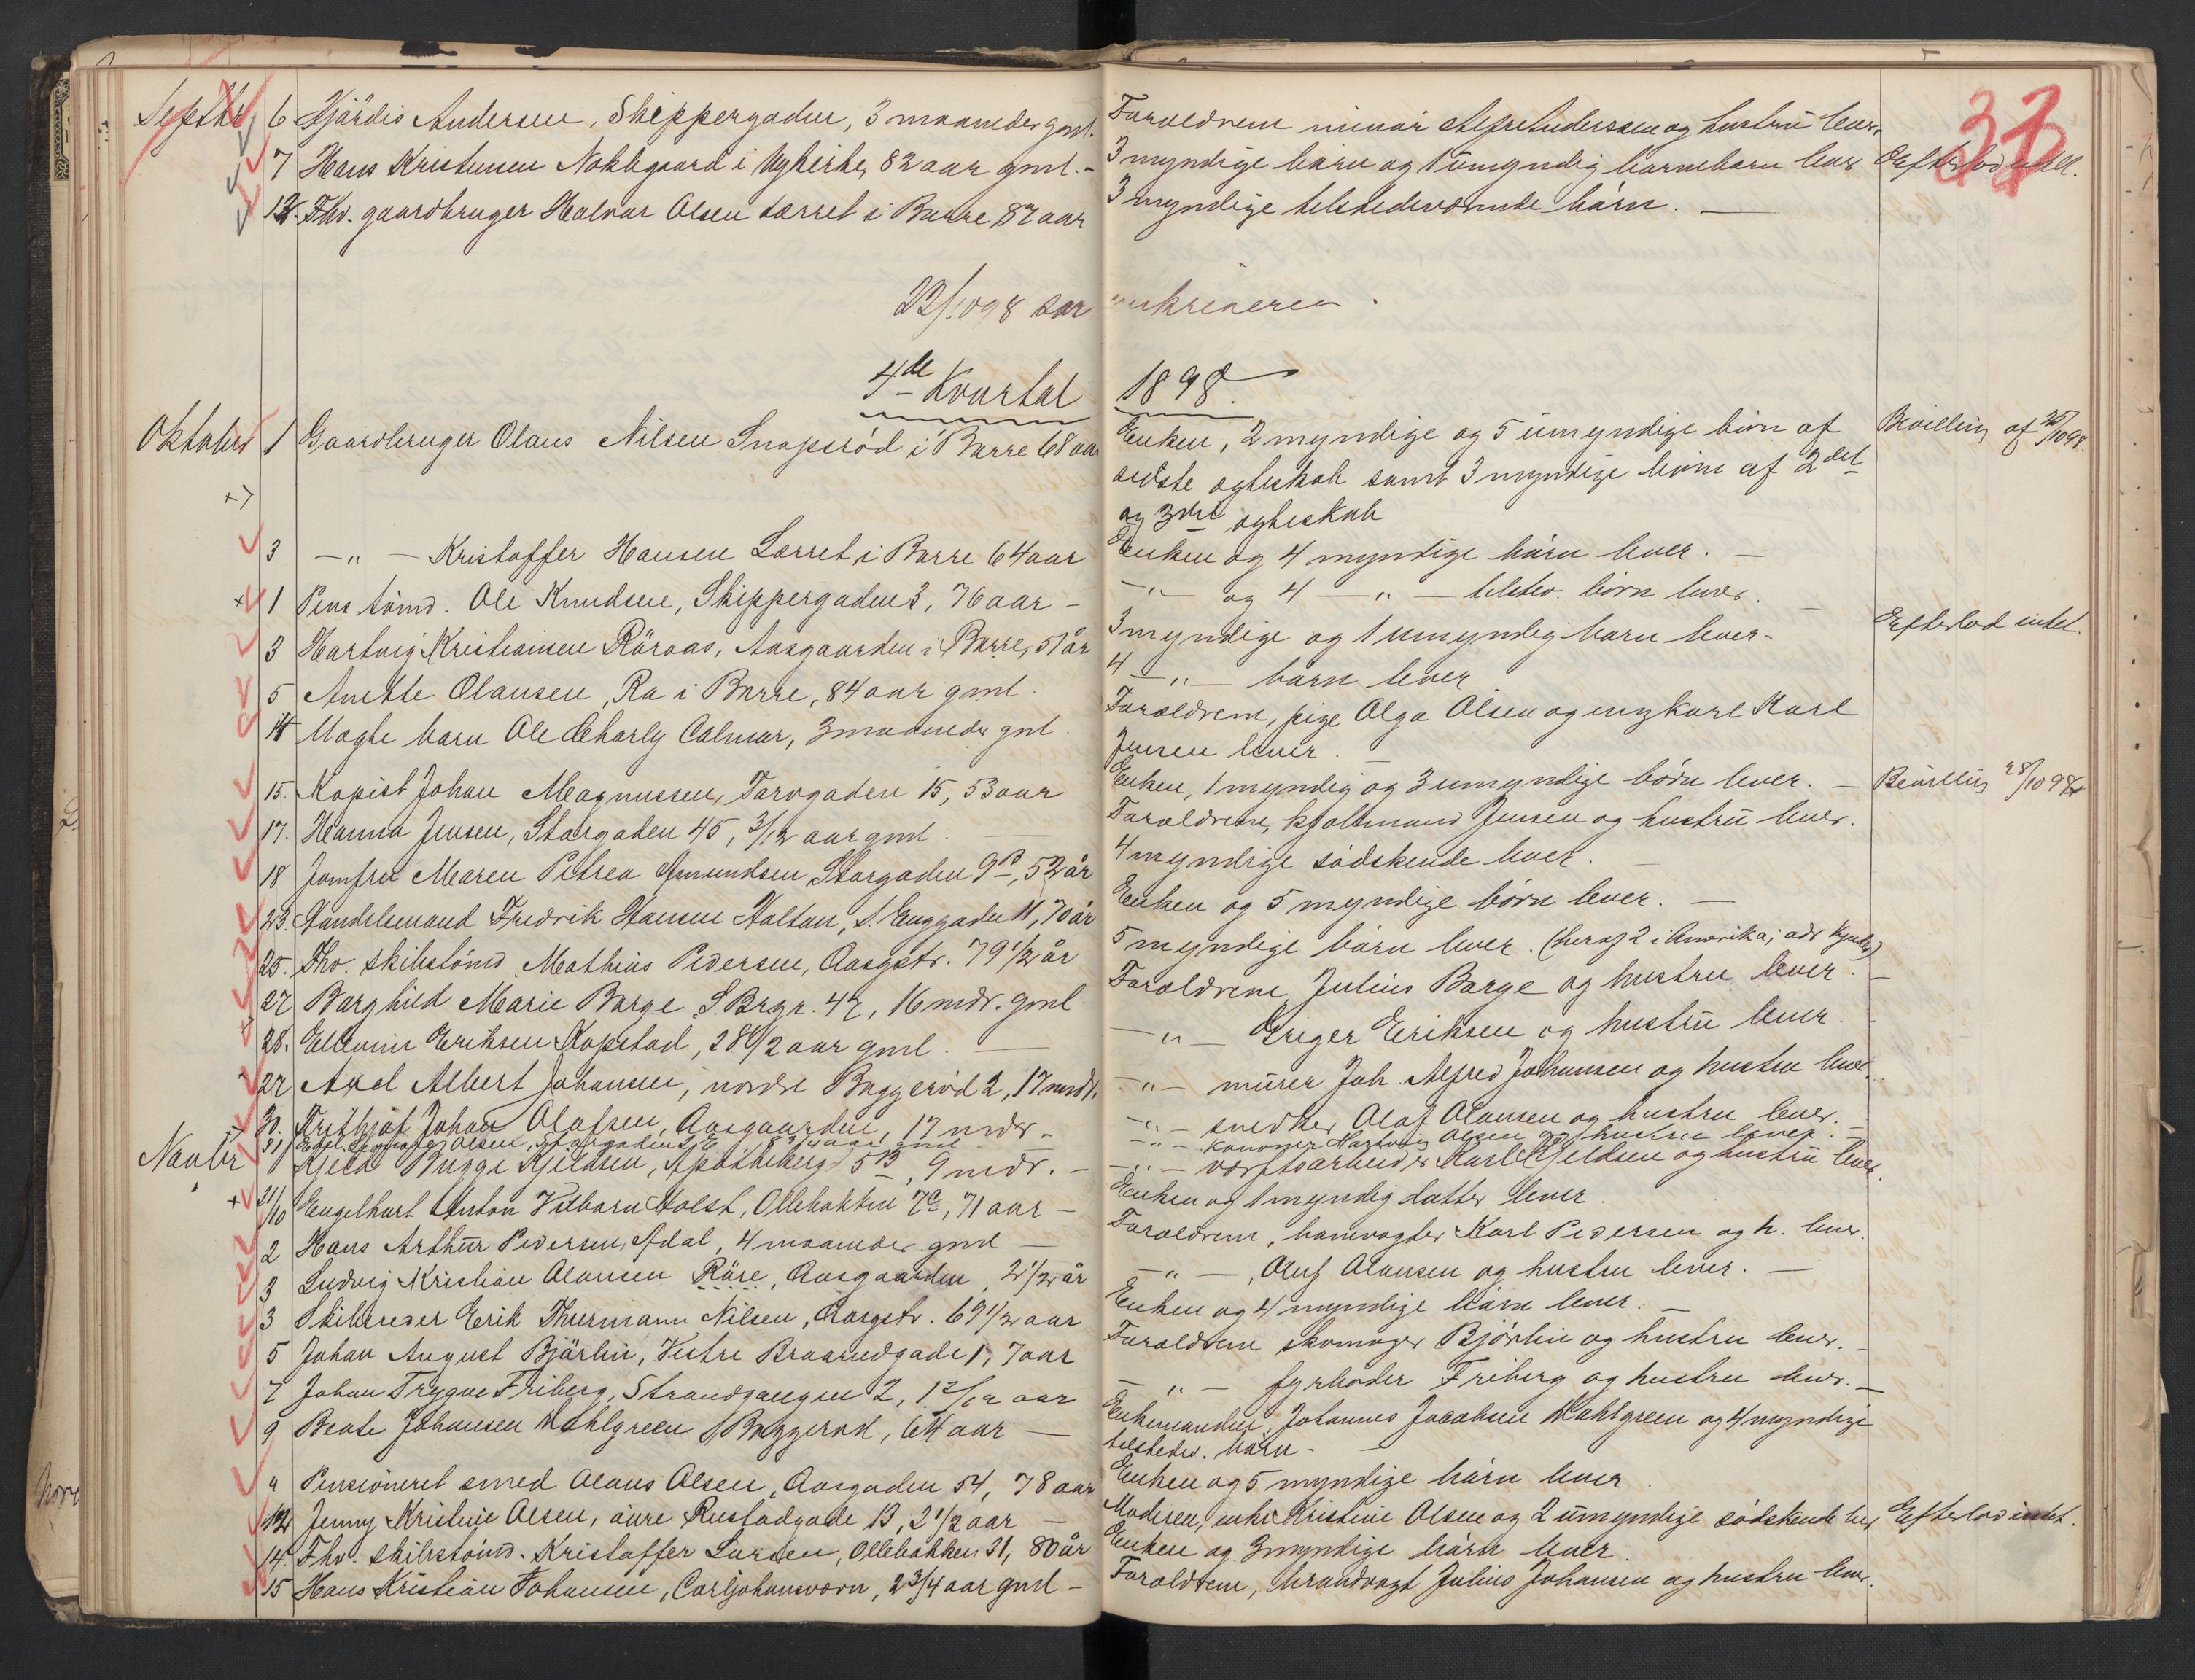 Septbr 6 Hjärdis Andersen, Skippergaden, 3 maaneder gml. Foraeldrene minör Alfr Anderssen og hustrü lever. 33
7 Hans Kristensen Nokkgaard i Nykirke, 82 aar gml. - 3 myndige börn og 1 ümyndig barnebarn lever Efterlod intet.
12. Fhv. gaardbruger Halvar Olsen Lørret i Borre 87 aar 3 myndige tilstedeværende börn. —
22/10 98
4de Kvartal 1898.
Oktober 1 Gaardbruger Olaus Nilsen Snapsröd i Borre 68 aar Enken, 2 myndige og 5 ümyndige börn af Bevilling af 25/10 98.
sidste egteskab samt 3 myndige börn af 2det
og 3die egteskab
3 —"— Kristoffer Hansen Lørret i Borre 64 aar Enken og 4 myndige börn lever. —
1 Pens tömd. Ole Knudsen, Skippergaden 3, 76 aar — —"— og 4 —"— tilstev. börn lever.
3 Hartvig Kristiansen Röraas, Aasgaarden i Borre, 51 år 3 myndige og 1 umyndig barn lever — Efterlod intet.
5 Anette Olausen, Ra i Borre, 84 aar gml. 4 —"— barn lever
14 Uægte barn Ole Charly Calmar, 3 maaneder gml. Foraeldrene, pige Olga Olsen og ungkarl Karl
Jensen lever. —
15. Kopist Johan Magnussen, Torvgaden 15, 53 aar Enken, 1 myndig og 3 umyndige börn lever. — Bevilling 28/10 98
17. Hanna Jensen, Storgaden 45, 3/12 aar gml. — Foraeldrene, Jensen og hustrü lever.
18 Jomfru Maren Petrea Amundsen, Storgaden 9B, 52 år 4 myndige södskende lever. —
23. Handelsmand Fredrik Hansen Holtan, S. Enggaden 11, 70 år Enken og 5 myndige börn lever. —
25. Fhv. skibstömd. Mathias Pedersen, Aasgstr. 79 1/2 år 5 myndige börn lever. (heraf 2 i Amerika; adr kjendes)
27 Borghild Marie Borge, S. Brgr. 42, 16 mdr. gml. Foraeldrene Julius Borge og hustru lever. —
28. Eriksen Kopstad, 28 1/2 aar gml. — —"— Griger Eriksen og hustrü lever.
27 Axel Albert Johansen, nordre Baggeröd 2, 17 mndr. —"— mürer Joh. Alfred Johansen og hustru lever.
30. Frithjof Johan Olafsen, Aasgaarden, 17 mdr. —"— snedker Olaf Olausen og hustru lever. —
31/ Olsen, Storgaden 8 3/4 aar gml —"— Kanoner Hartvig Olsen og hustru lever. —
Novbr 1 Kjeld Bugge Kjeldsen, Apothekerg. 5B, 9 mdr. — —"— værftsarbeider Karl Kjeldsen og hustrü lever.
21/10 Engelhart Anton Vilborn Holst, Ollebakken 7C, 71 aar — Enken og 1 myndig datter lever.
2 Hans Arthür Pedersen, Adal, 4 maaneder gml — Foraeldrene, banevogter Karl Pedersen og h. lever.
3 Ludvig Kristian Olausen Röre, Aasgaarden, 2 1/2 år —"—, Oluf Olausen og hustru lever. —
3 Skibsreder Erik Thurmann Nilsen, Aasgstr. 69 1/2 aar Enken og 4 myndige börn lever. —
5 Johan August Bjärlin, Vestre Braarudgade 1, 7 aar Foraeldrene skomager Björlin og hustru lever. —
7 Johan Trygve Friberg, Strandgangen 2, 1 2/12 aar —"— fyrböder Friberg og hustru lever. —
9 Beate Johansen Wahlgreen, Baggerød, 64 aar — Enkemanden, Johannes Jacobsen Wahlgreen og 4 myndige
tilstedev. börn. —
9 Pensioneret smed Olaus Olsen, Aasgaden 54, 78 aar Enken og 5 myndige börn lever
12 Jenny Kristine Olsen, övre Rustadgade 13, 2 1/2 aar — Moderen, enke Kristine Olsen og 2 ümyndige södskende lev Efterlod intet.
14. Fhv. skibstömd. Kristoffer Larsen, Ollebakken 31, 80 år Enken og 3 myndige börn lever.
15 Hans Kristian Johansen, Carljohansvern, 2 3/4 aar gml — Foraeldrene, brandvagt Julius Johansen og hustru lever.